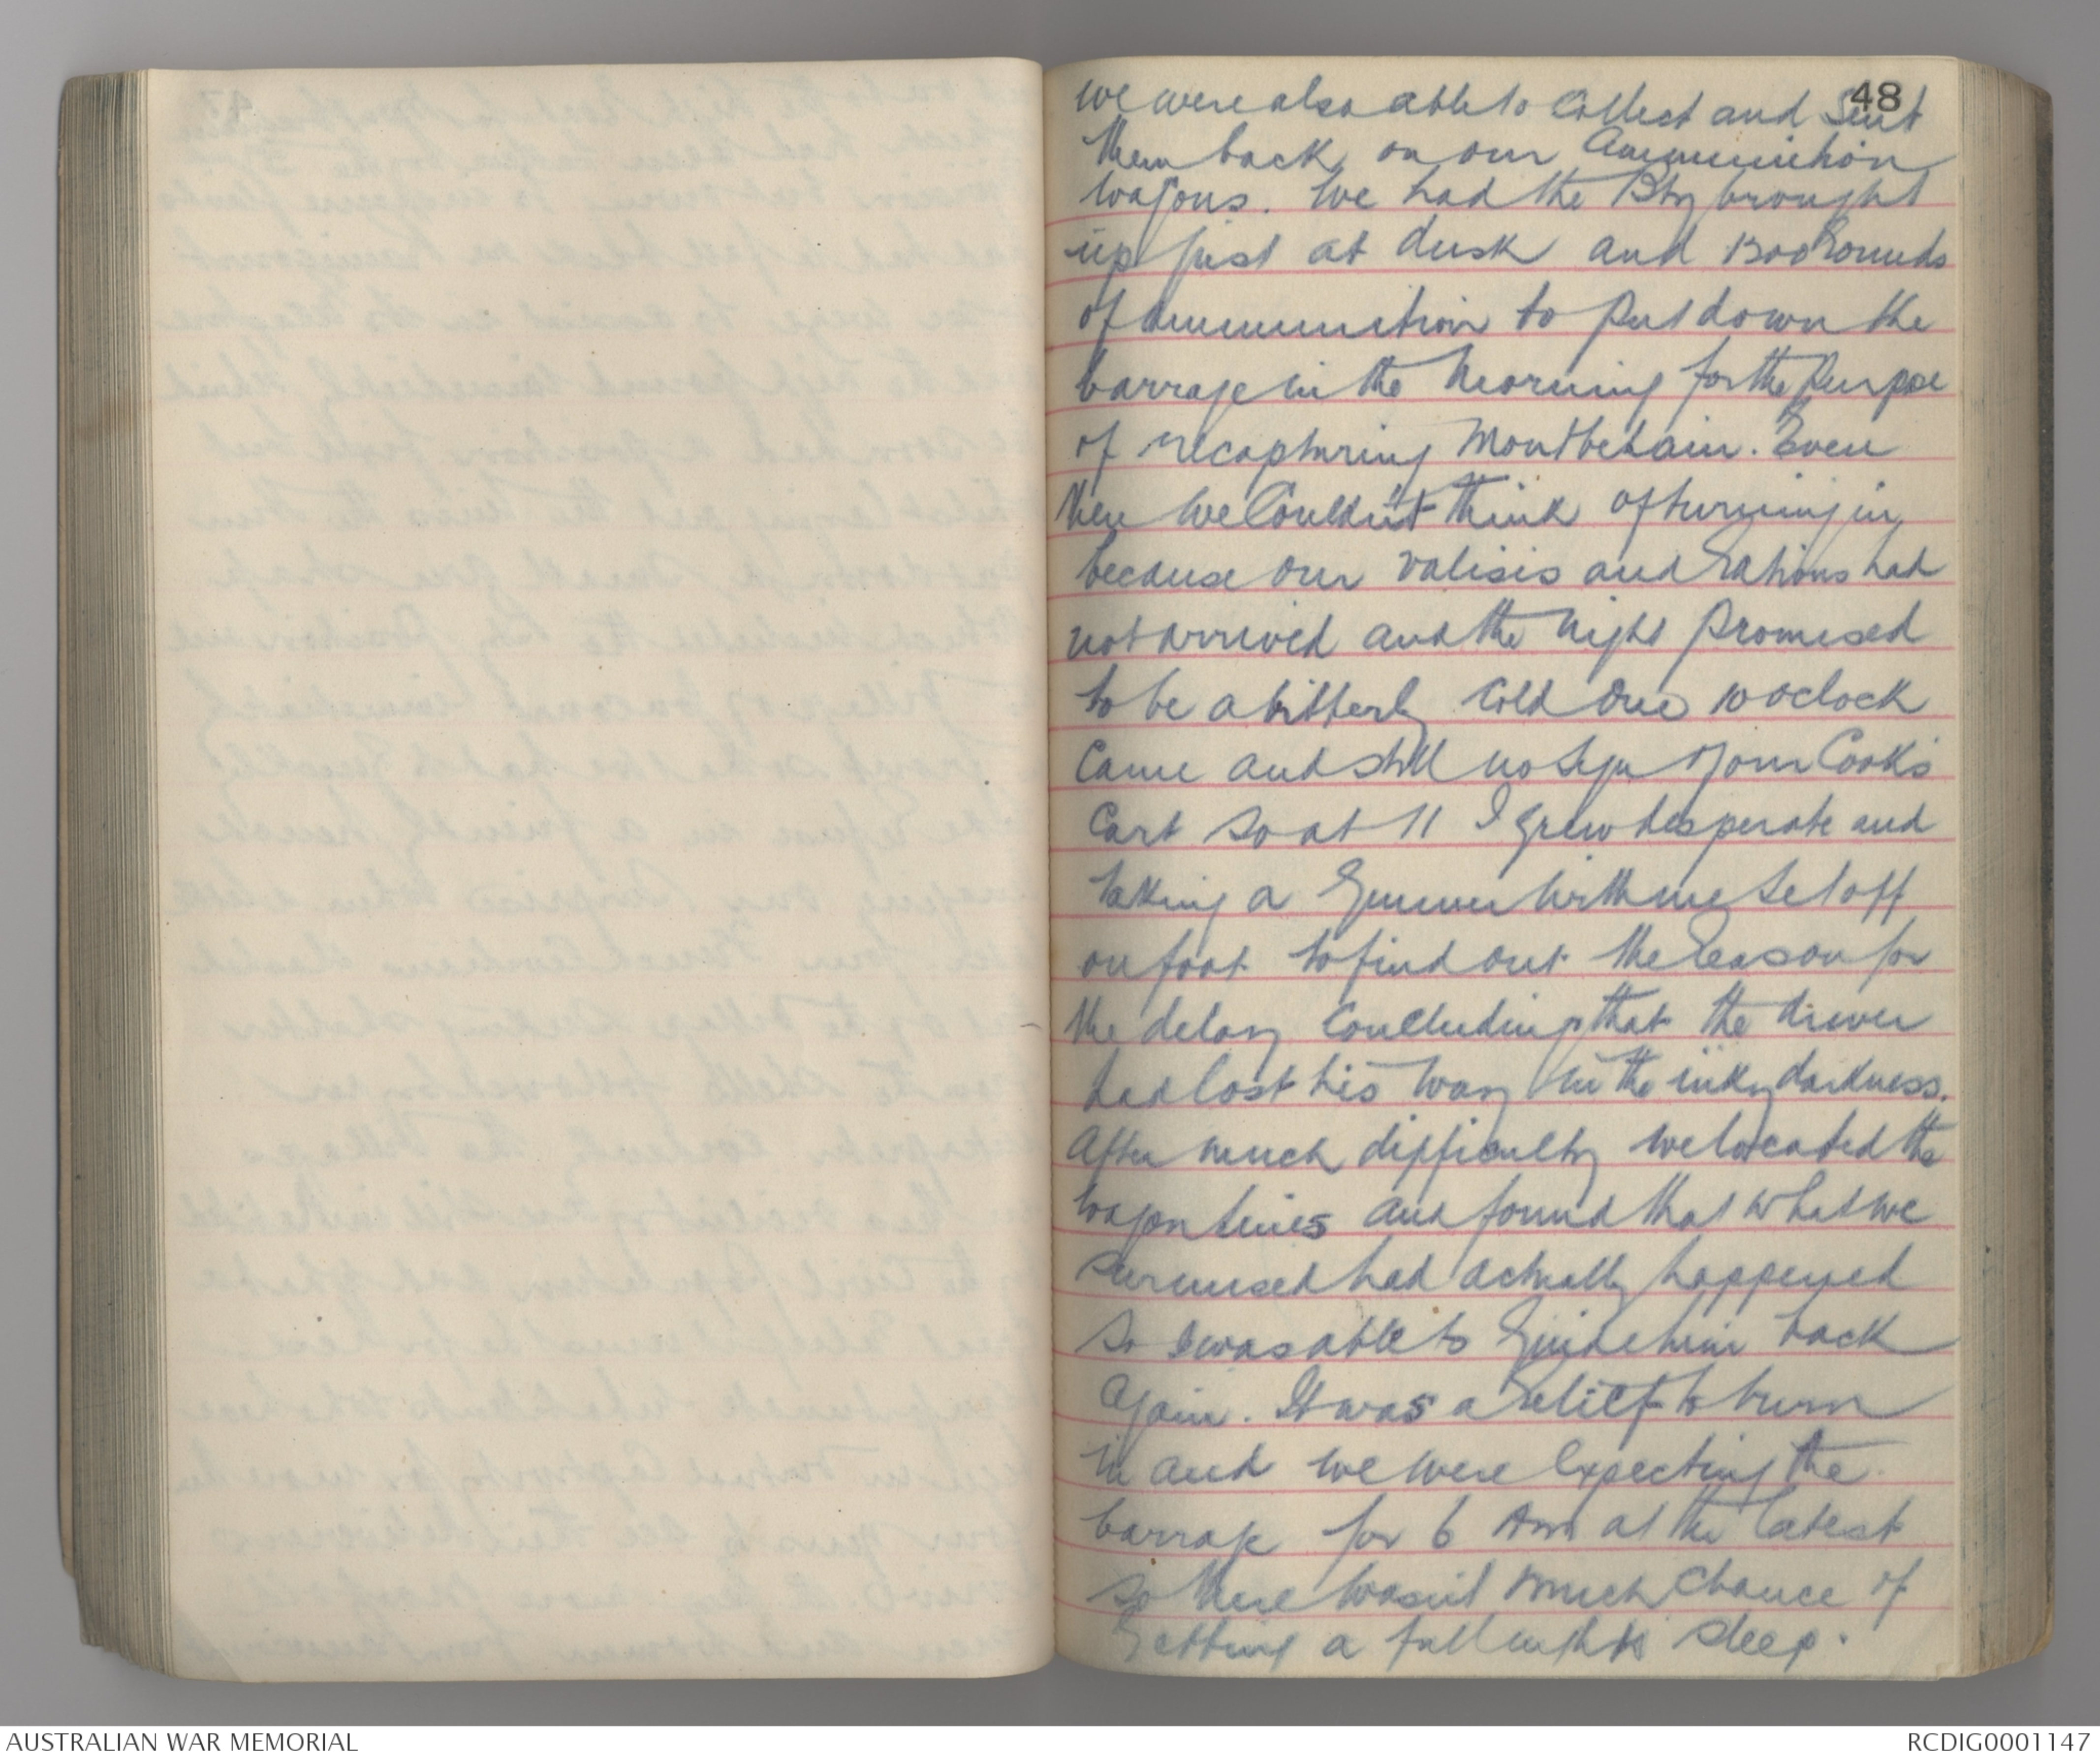 48
we were also able to collect and sent
them back on our Ammunition
wagons. We had the Bty brought
up just at dusk and 1300 rounds
of Ammunition to put down the
barrage in the Morning for the purpose
of recapturing Montbehain. Even
then we Couldn't think of turning in
because our valisis and rations had
not arrived and the night promised
to be a bitterly Cold One 10 oclock
Came and still no sign of our Cook's
Cart so at 11 I grew desperate and
taking a Gunner with me set off
on foot to find out the reason for
the delay Concluding that the driver
had lost his way in the inky darkness.
After much difficulty we located the
wagon lines and found that what we
surmised had actually happened
so I was able to Guide him back
Again. It was a relief to turn
in and we were Expecting the
barrage for 6 Am at the latest
so there wasn't much Chance of
Getting a full nights sleep.
AUSTRALIAN WAR MEMORIAL
RCDIG0001147